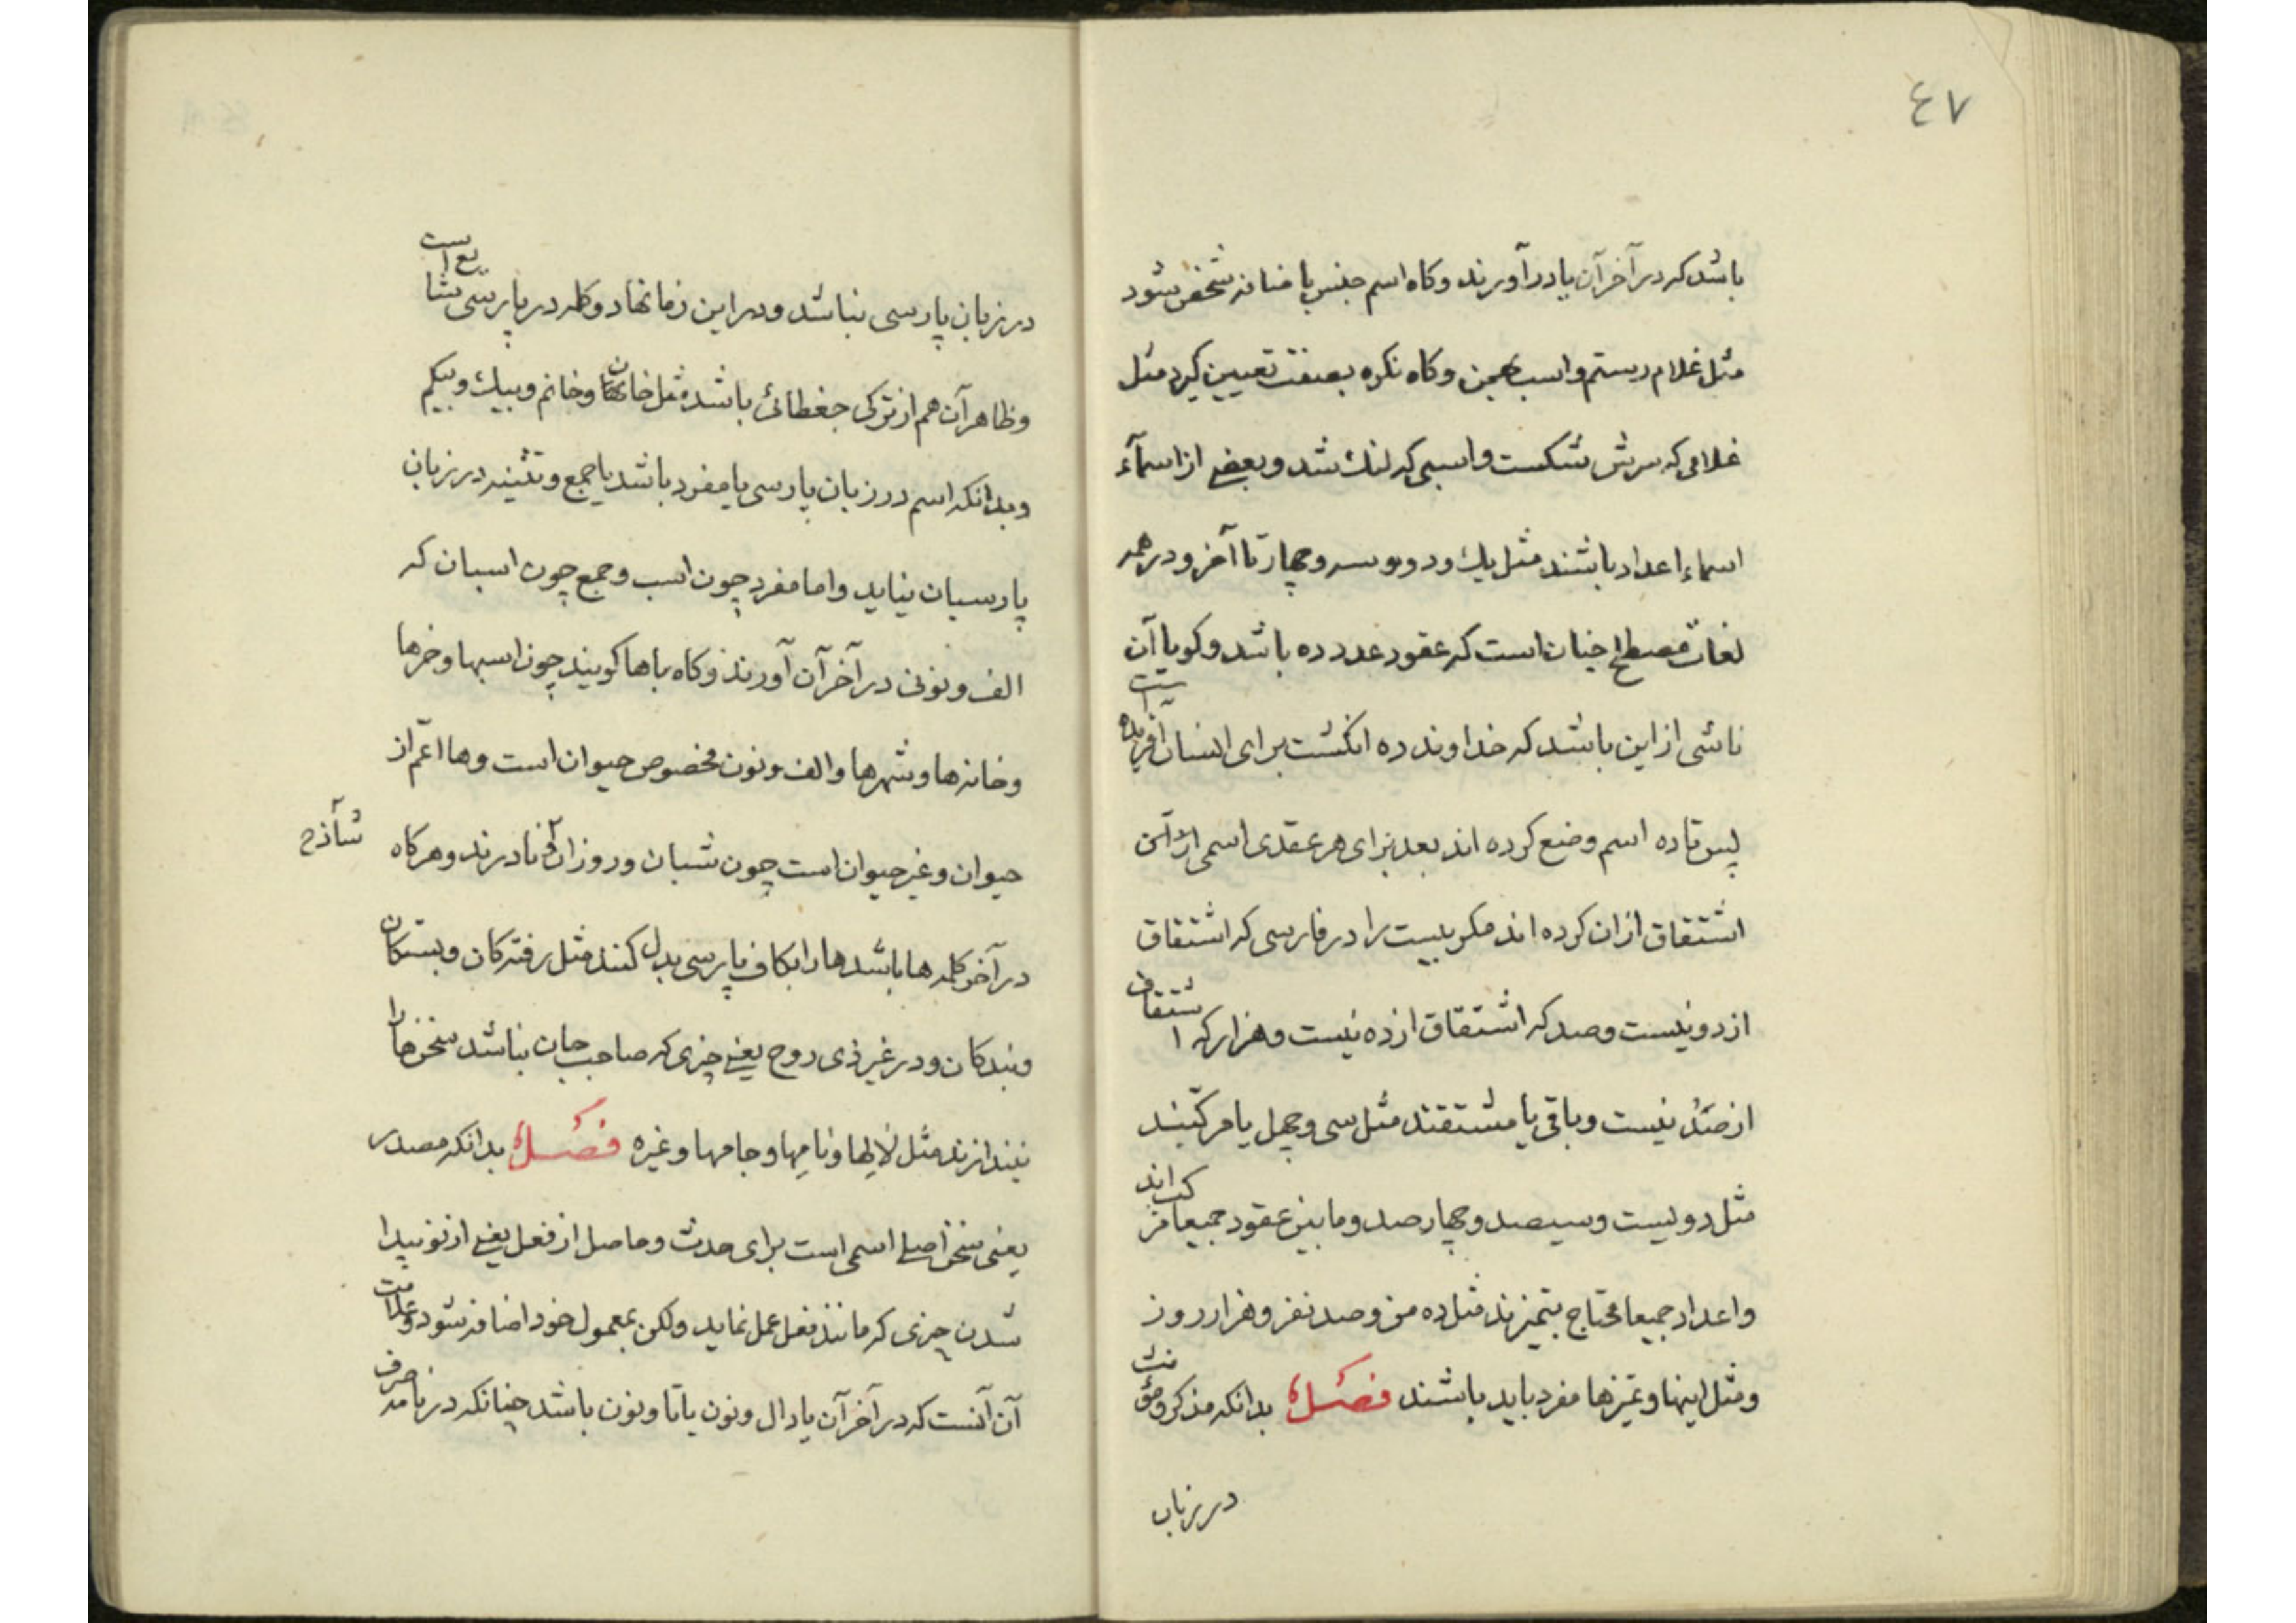 ٤٧
باشد که در آخر آن یا در آورند و کاه اسم جنس باضافه مشخص شود
مثل غلام رستم و اسب بهمن و کاه نکره بصفت تعیین کیرد مثل
غلامی که سرش شکست و اسبی که لنک شد و بعضی از اسمآء
اسماء اعداد باشند مثل یک و دو و سه و چهار تا آخر و در همه
لغات مصطلح چنان است که عقود عدد ده باشد و کویا آن
ناشی از این باشد که خداوند ده انکشت برای انسان آفریده است
پس تا ده اسم وضع کرده اند بعد برای هر عقدی اسمی از آن
اشتقاق ازان کرده اند مکر بیست را در فارسی که اشتقاق
از دو نیست و صد که اشتقاق از ده نیست و هزار که اشتقاق
از صد نیست و باقی یا مشتقند مثل سی و چهل یا مرکبند
مثل دویست و سیصد و چهارصد و ما بین عقود جمیعا مرکب اند
و اعداد جمیعا محتاج بتمیزند مثل ده من و صد نفر و هزار روز
و مثل اینها و تمیزها مفرد باید باشند فصل بدانکه مذکر و مؤنث
در زبان
در زبان پارسی نباشد و در این زمانها دو کلمه در پارسی شایع است
و ظاهر آن هم از ترکی جغطائی باشد مثل خان و خانم و بیک و بیکم
و بدانکه اسم در زبان پارسی یا مفرد باشد یا جمع و تثنیه در زبان
پارسیان نیاید و اما مفرد چون اسب و جمع چون اسبان که
الف و نونی در آخر آن آورند و کاه با ها کویند چون اسبها و خرها
و خانه ها و شهرها و الف و نون مخصوص حیوان است و ها اعم از
حیوان و غیر حیوان است چون شبان و روزان نادرند و هرکاه
در آخر کلمه ها باشد ها را بکاف پارسی بدل کنند مثل رفته کان و بستکان
و بندکان و در غیر ذی روح یعنی چیزی که صاحب جان نباشد سخن ها را
نیندازند مثل لالها و نامها و جامها و غیره فصل بدانکه مصدر
یعنی سخن اصلی اسمی است برای حدث و حاصل از فعل یعنی از نو پیدا
شدن چیزی که مانند فعل عمل نماید ولکن بمعمول خود اضافه شود و علامت
آن آنست که در آخر آن یا دال و نون یا تا و نون باشد چنانکه در نامه صرف